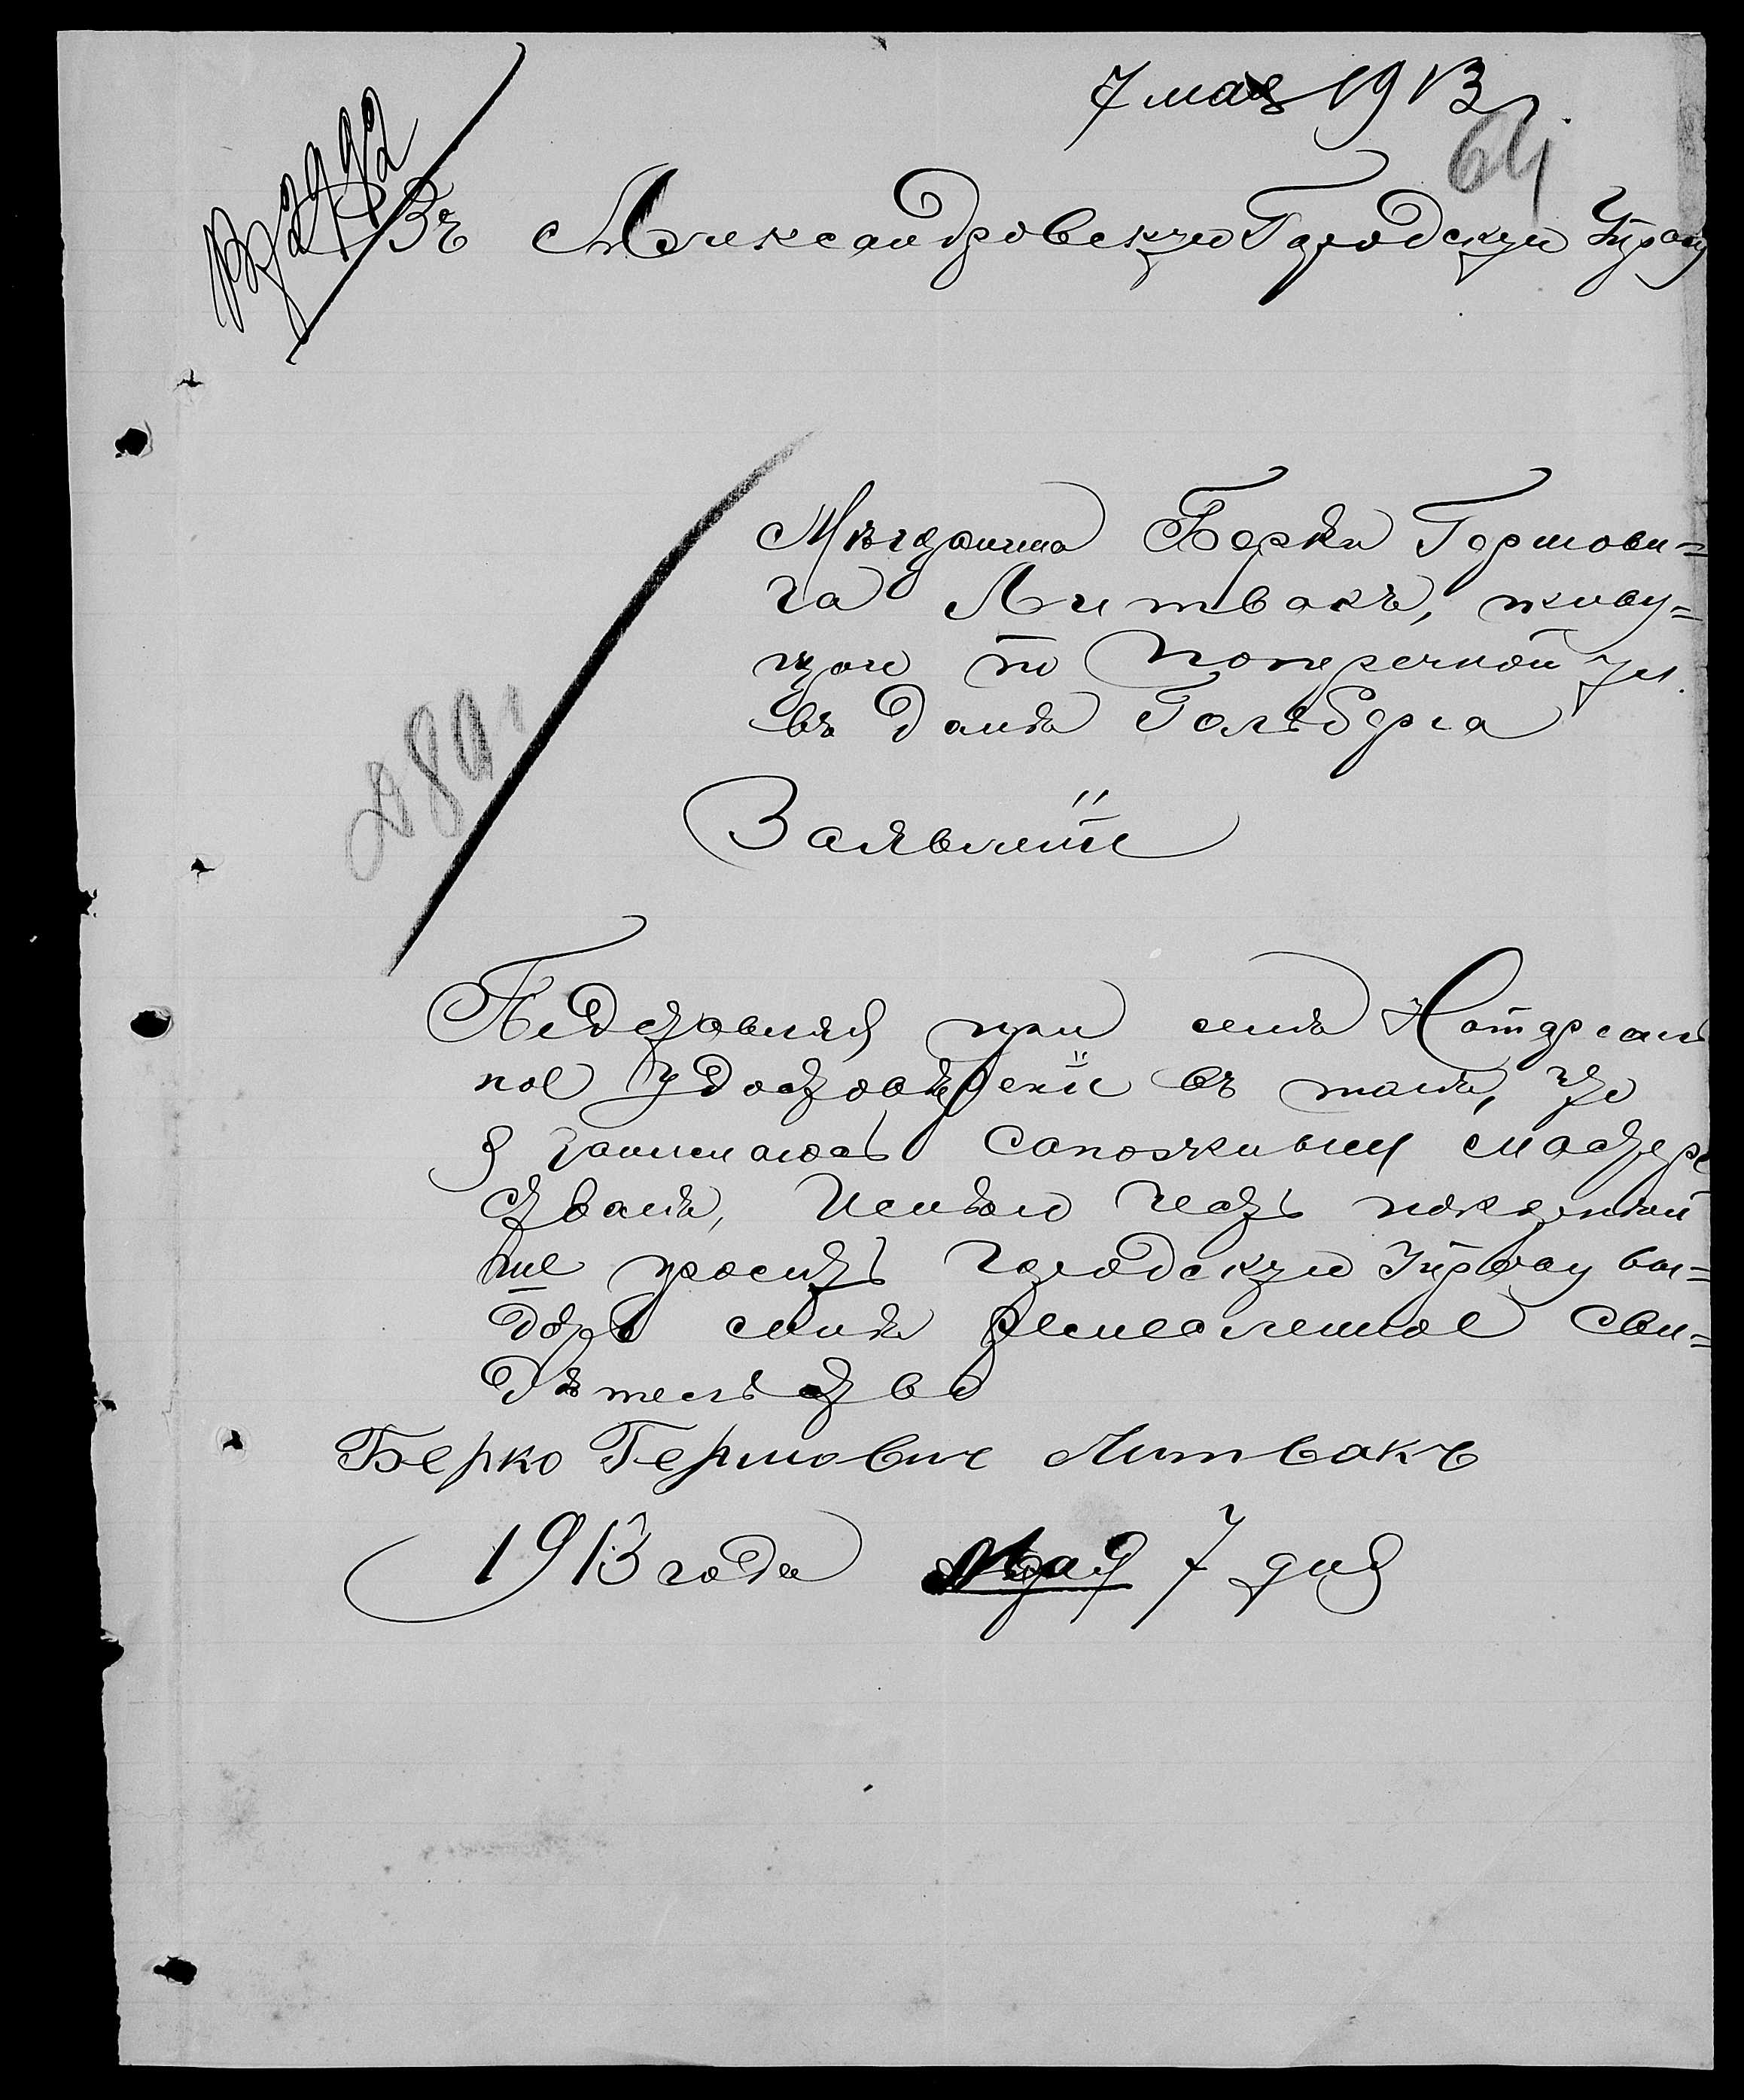 7 мая 1913 г.
64
Вх 2992
Въ Александровскую Городскую Управу
Мѣщанина Берки Гермови=
ча Литвакъ, живу=
щаго по Поперечной ул.
въ домѣ Гольберга
Заявленіе
Педставляя при семъ Нотаріаль
ное удостовѣреніе въ томъ, что
я занимаюсь сапожнымъ мастер
ствомъ, Имѣю честь покорнѣй
ше просить Городскую Управу вы=
дать мнѣ ремесленное сви=
дѣтельство
Берко Гермович Литвакъ
1913 года Мая 7 дня